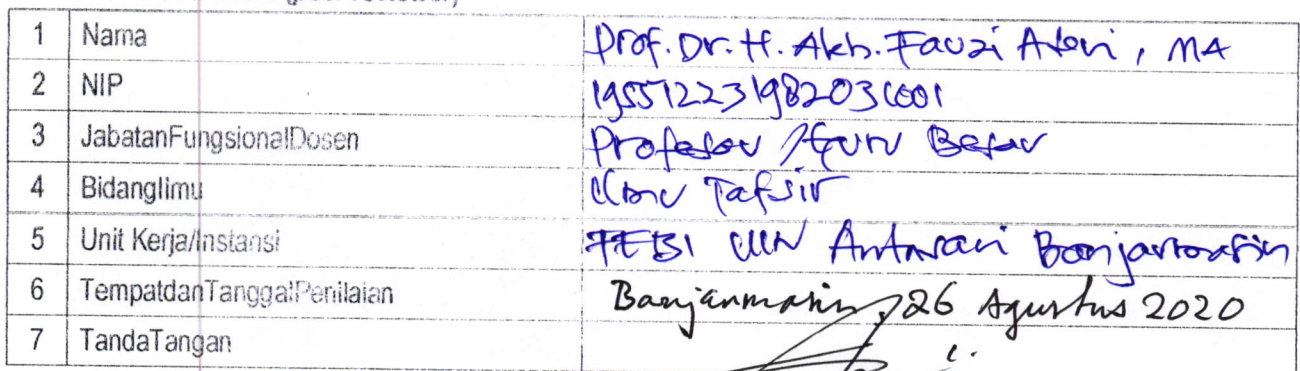 1 Nama Prof. Dr. H. Akh. Fauzi Aseri, MA
2 NIP 195512231982031001
3 JabatanFungsionalDosen Profesor / Guru Besar
4 BidangIlmu Ilmu Tafsir
5 Unit Kerja/Instansi FEBI UIN Antasari Banjarmasin
6 TempatdanTanggalPenilaian Banjarmasin, 26 Agustus 2020
7 TandaTangan